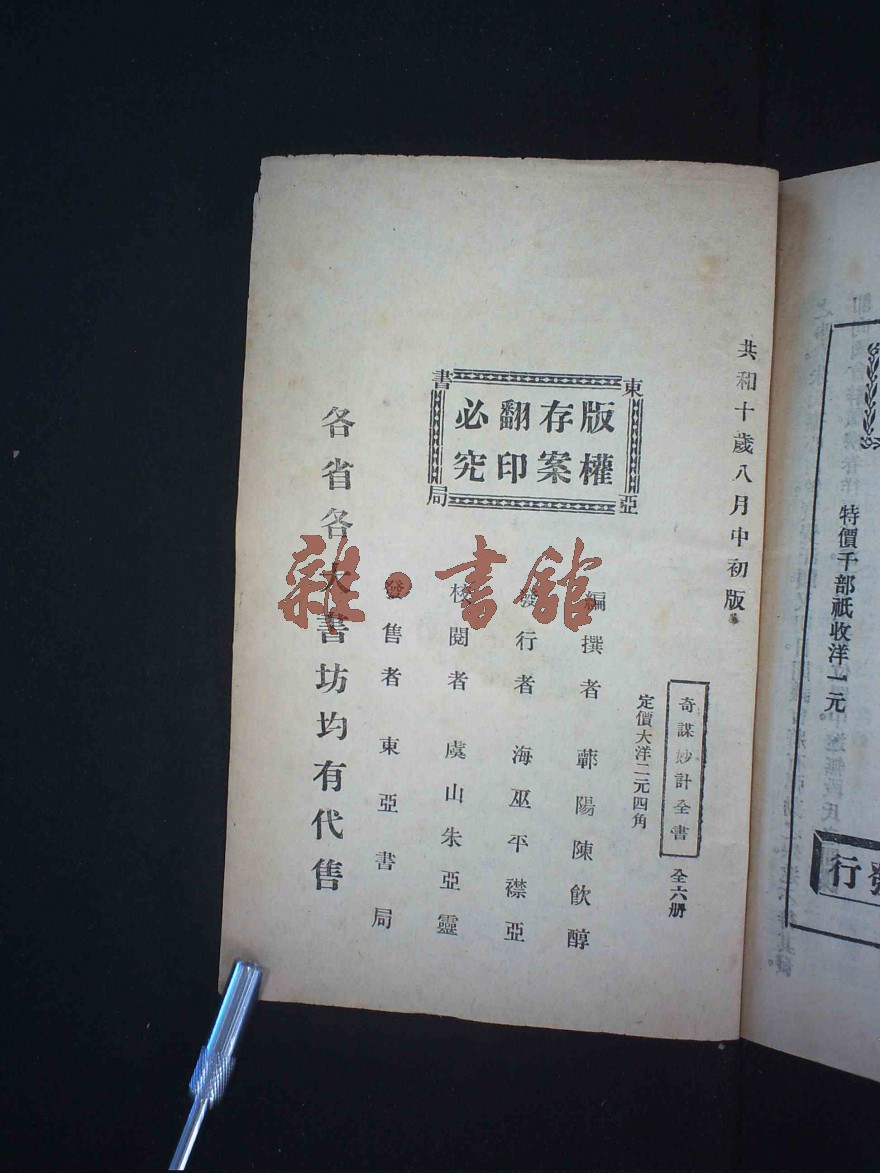 特價千部祇收洋一元
發行
共和十歲八月中初版
奇謀妙計全書
全六册
定價大洋二元四角
東亞書局
版權
存案
翻印
必究
編撰者 蘄陽陳飲醇
發行者 海巫平襟亞
校閱者 虞山朱亞靈
發售者 東亞書局
各省各大書坊均有代售
雜·書舘